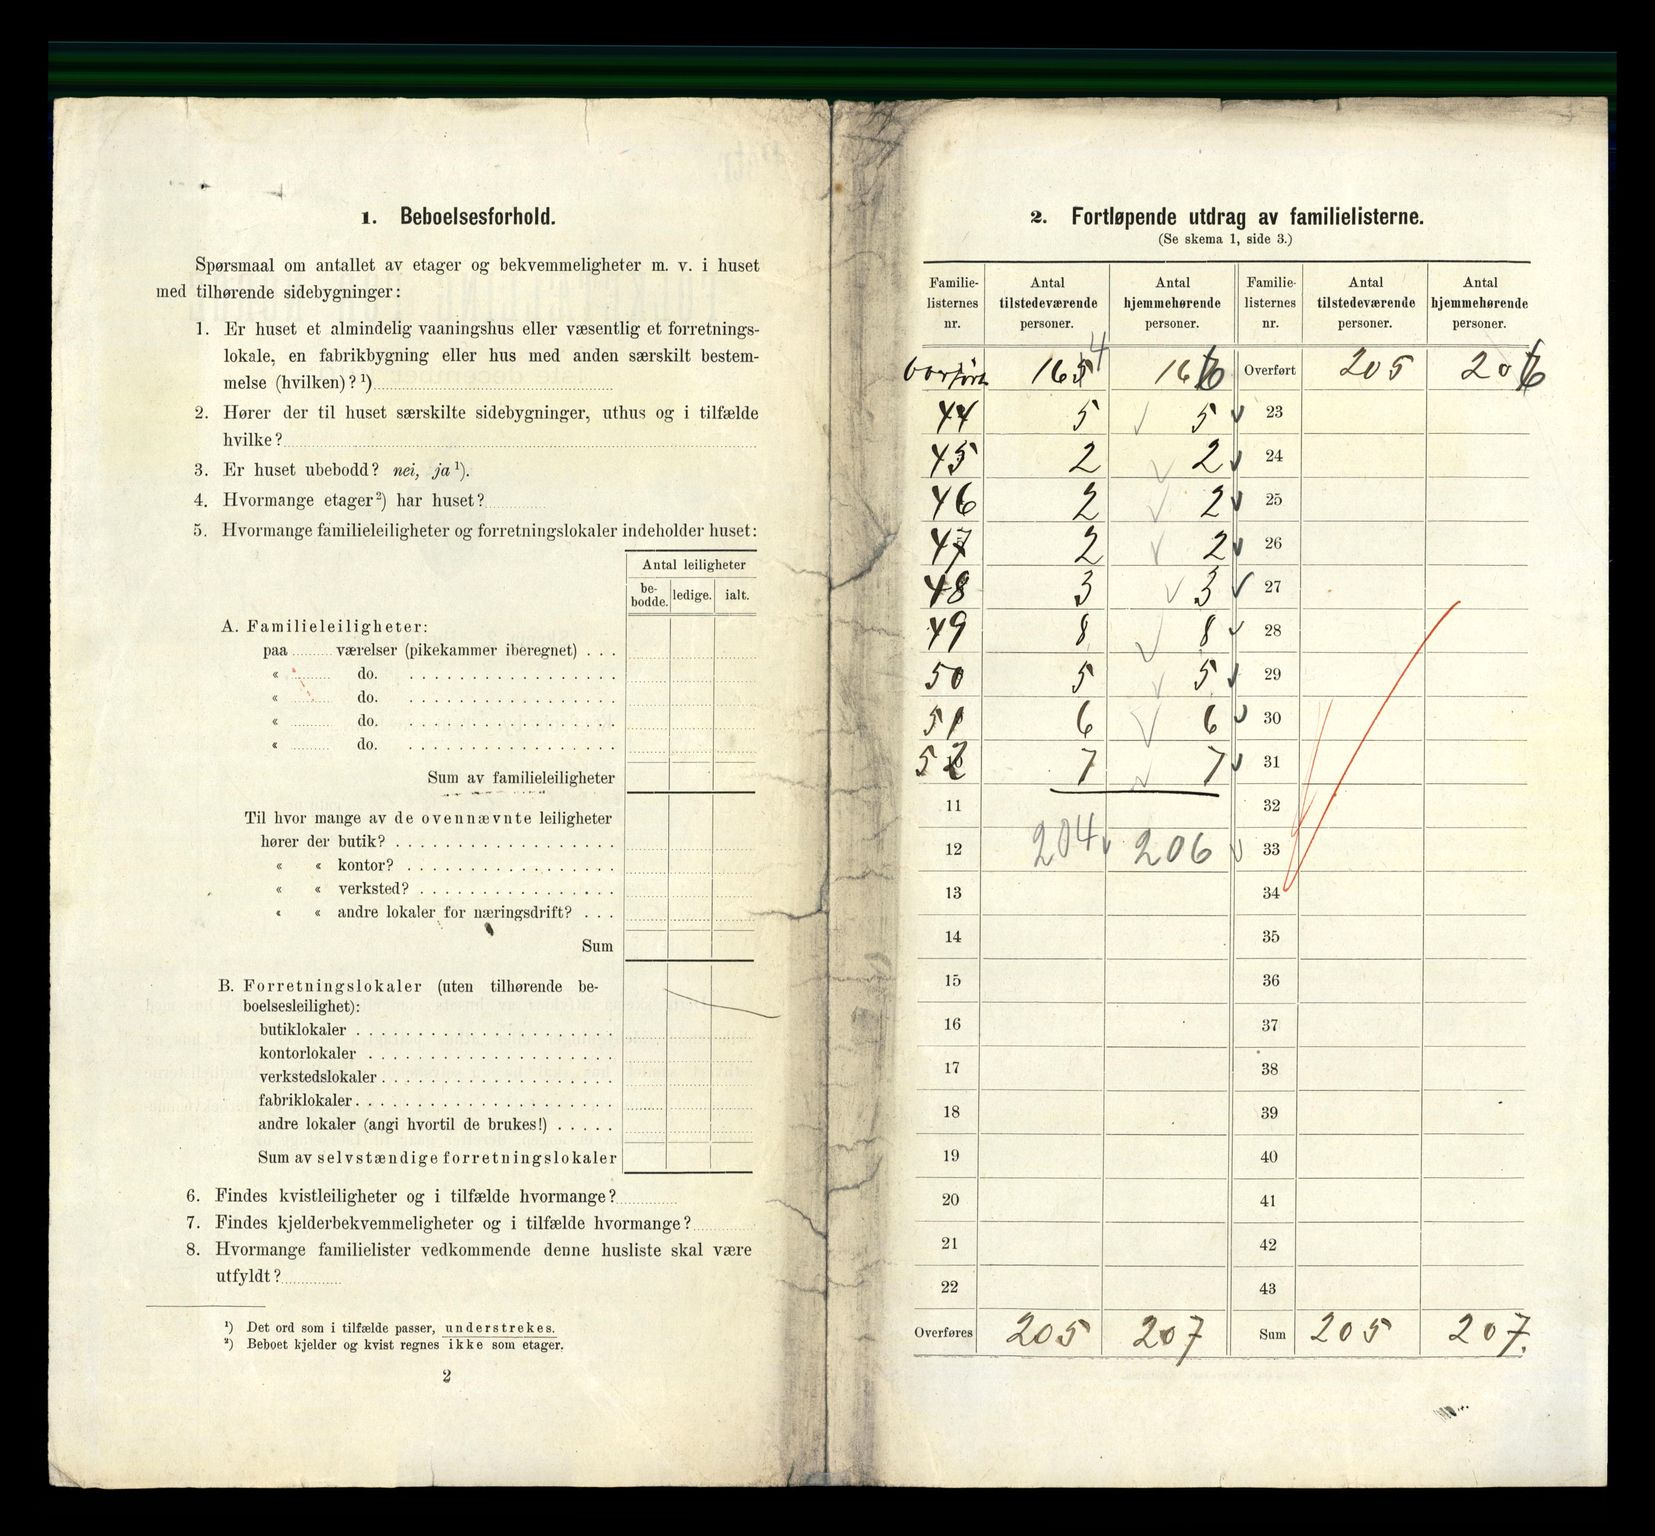 1. Beboelsesforhold.
Spørsmaal om antallet av etager og bekvemmeligheter m. v. i huset
med tilhørende sidebygninger:
1. Er huset et almindelig vaaningshus eller væsentlig et forretnings-
lokale, en fabrikbygning eller hus med anden særskilt bestem-
melse (hvilken)? ¹)
2. Hører der til huset særskilte sidebygninger, uthus og i tilfælde
hvilke?
3. Er huset ubebodd? nei, ja ¹).
4. Hvormange etager ²) har huset?
5. Hvormange familieleiligheter og forretningslokaler indeholder huset:
Antal leiligheter
be-
bodde. ledige. ialt.
A. Familieleiligheter:
paa værelser (pikekammer iberegnet) . . .
« do.
« do.
« do.
« do.
Sum av familieleiligheter
Til hvor mange av de ovennævnte leiligheter
hører der butik?
« « kontor?
« « verksted?
« « andre lokaler for næringsdrift? . . .
Sum
B. Forretningslokaler (uten tilhørende be-
boelsesleilighet):
butiklokaler
kontorlokaler
verkstedslokaler
fabriklokaler
andre lokaler (angi hvortil de brukes!) . . . . .
Sum av selvstændige forretningslokaler
6. Findes kvistleiligheter og i tilfælde hvormange?
7. Findes kjelderbekvemmeligheter og i tilfælde hvormange?
8. Hvormange familielister vedkommende denne husliste skal være
utfyldt?
¹) Det ord som i tilfælde passer, understrekes.
²) Beboet kjelder og kvist regnes ikke som etager.
2
2. Fortløpende utdrag av familielisterne.
(Se skema 1, side 3.)
Familie-
listernes
nr. Antal
tilstedeværende
personer. Antal
hjemmehørende
personer. Familie-
listernes
nr. Antal
tilstedeværende
personer. Antal
hjemmehørende
personer.
165 4 166 Overført 205 206
44 5 5 23
45 2 2 24
46 2 2 25
47 2 2 26
48 3 3 27
49 8 8 28
50 5 5 29
51 6 6 30
52 7 7 31
11 32
12 204 206 33
13 34
14 35
15 36
16 37
17 38
18 39
19 40
20 41
21 42
22 43
Overføres 205 207 Sum 205 207.